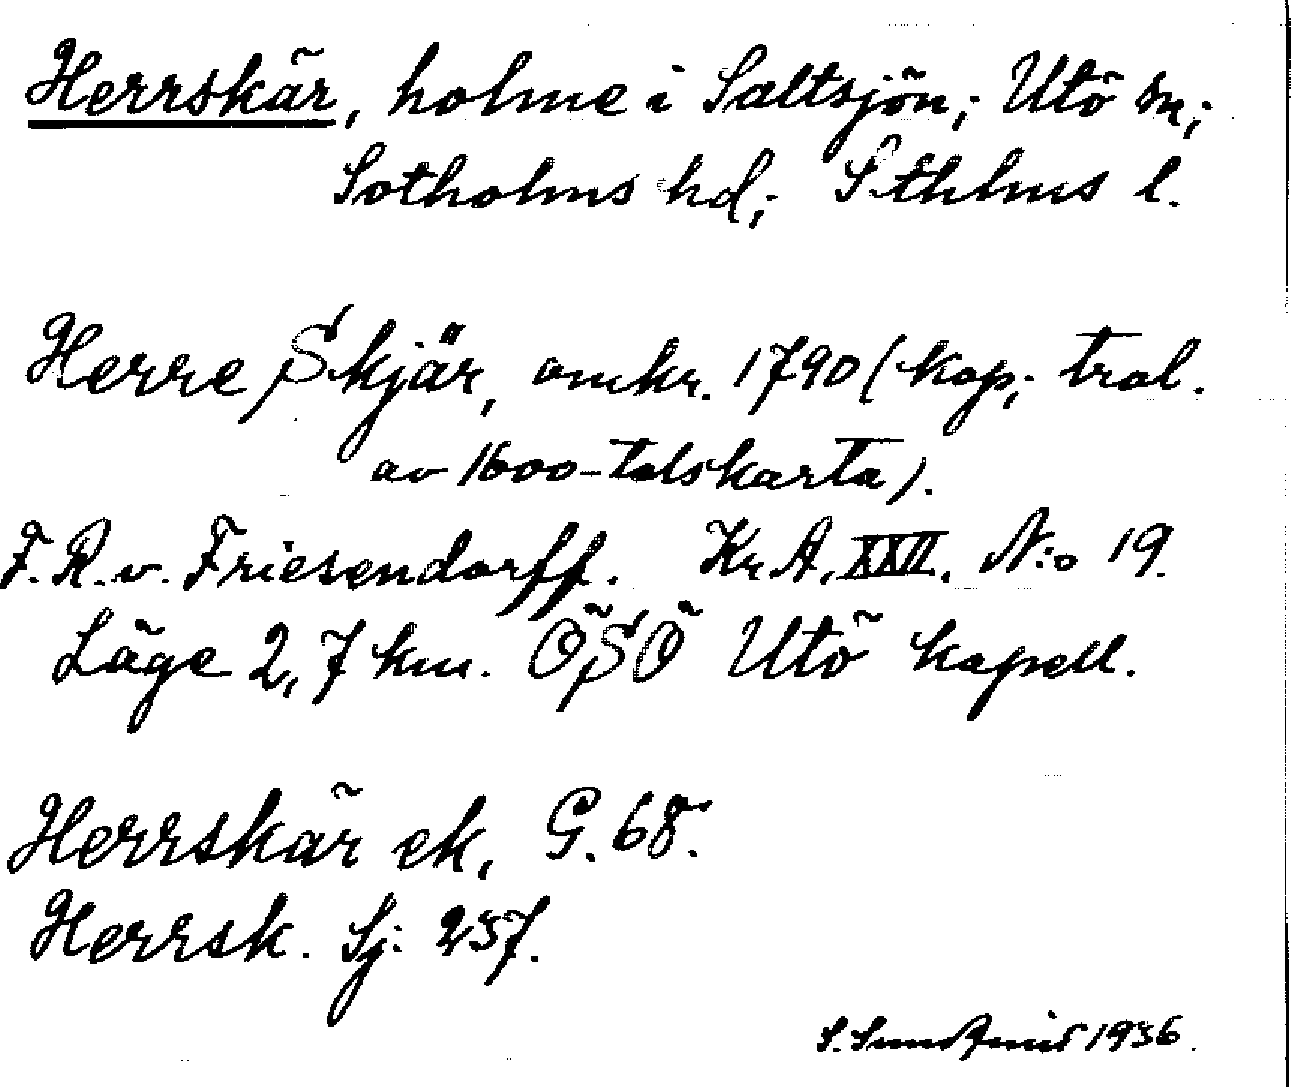 Herrskär, holme i Saltsjön; Utö sn;
Sotholms hd; Sthlms l.
Herre Skjär, omkr. 1790 (kop; trol.
av 1600-talskarta).
F. R. v. Friesendorff. Kr. A. XXVI. N:o 19.
Läge 2,7 km. ÖSÖ Utö kapell.
Herrskär ek, G. 68.
Herrsk. Sj: 257.
S. Sundqvist 1936.